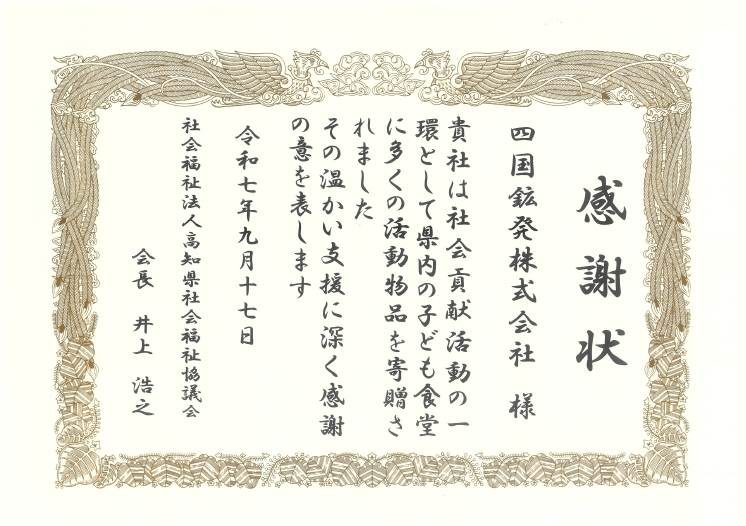 感謝状
四国鉱発株式会社 様
貴社は社会貢献活動の一
環として県内の子ども食堂
に多くの活動物品を寄贈さ
れました
その温かい支援に深く感謝
の意を表します
令和七年九月十七日
社会福祉法人高知県社会福祉協議会
会長 井上 浩之